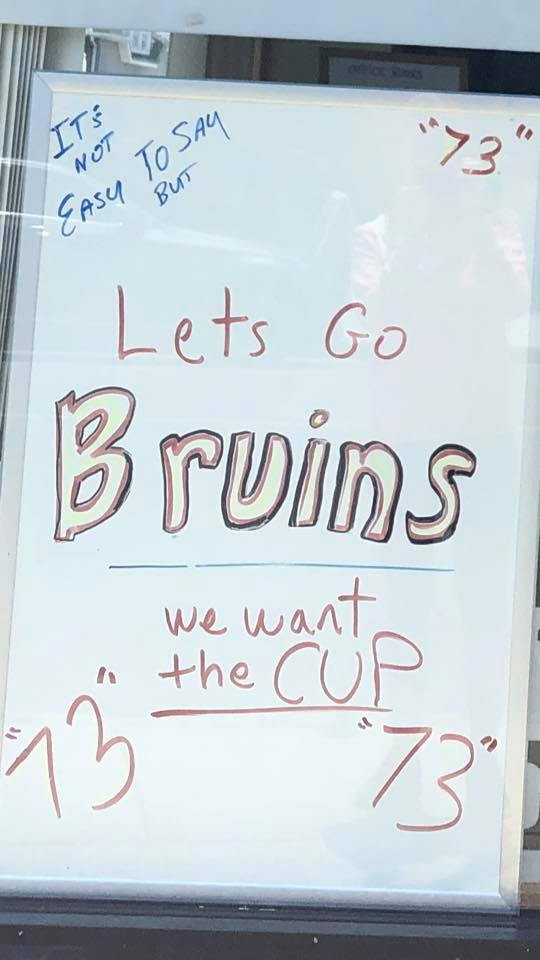 IT's
NOT
EASY TO SAY
BUT
"73"
Lets Go
Bruins
we want
the CUP
"73"
"73"